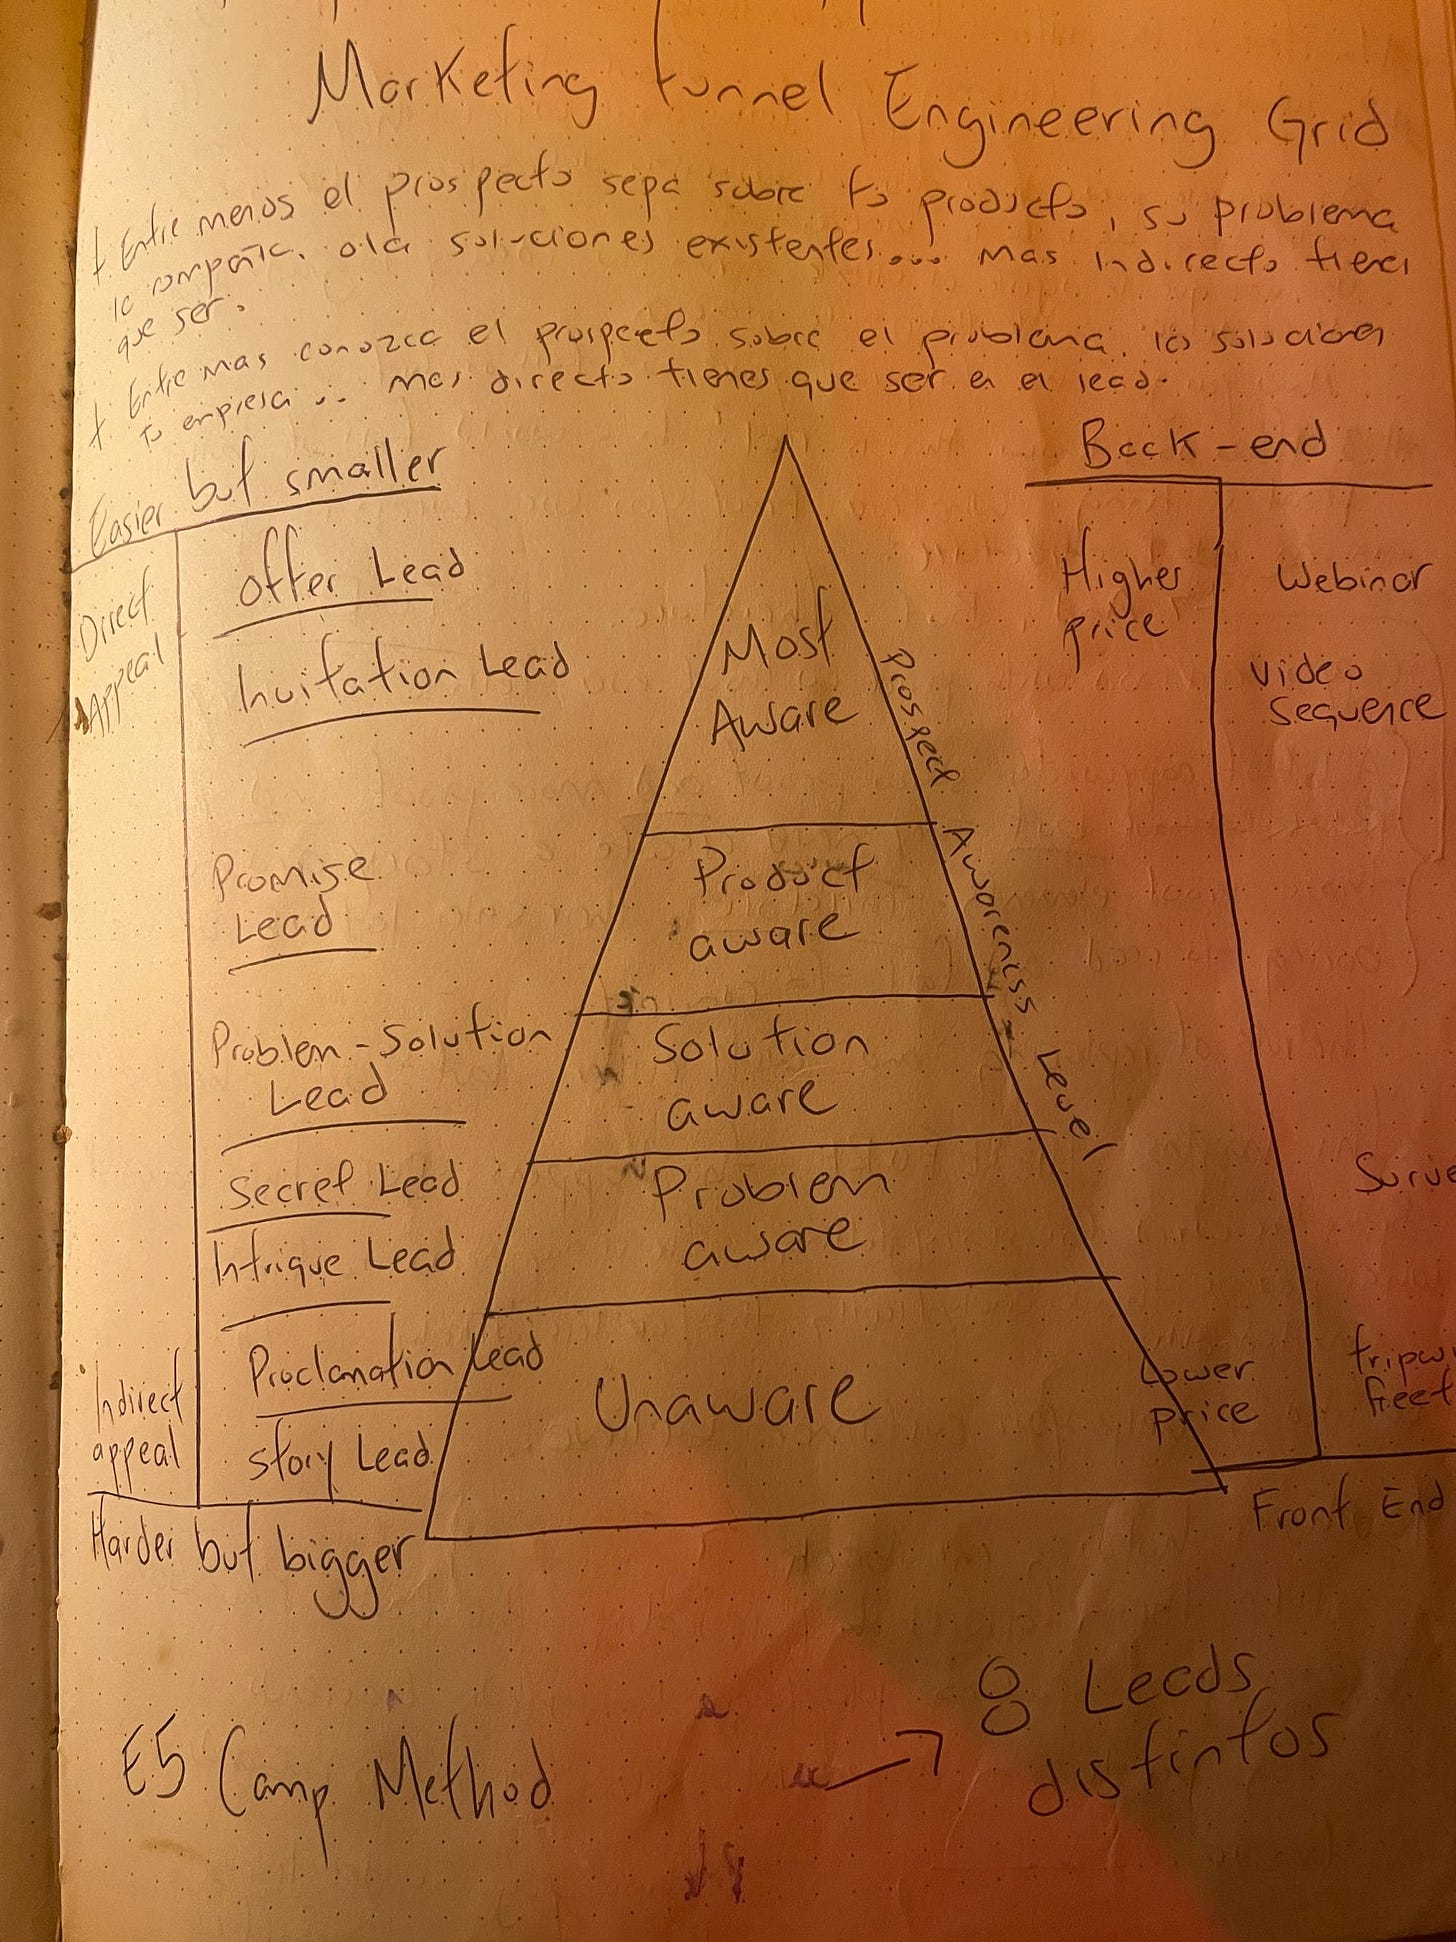 Marketing funnel Engineering Grid
+ Entre menos el prospecto sepa sobre tu producto, su problema
la compañia, o la soluciones existentes... mas indirecto tienes
que ser.
+ Entre mas conozca el prospecto sobre el problema, las soluciones
tu empresa... mas directo tienes que ser en el lead.
Easier but smaller
Back-end
Direct
Appeal
Offer Lead
Invitation Lead
Most
Aware
Prospect Awareness Level
Higher
price
Webinar
Video
Sequence
Promise
Lead
Product
aware
Problem-Solution
Lead
Solution
aware
Secret Lead
Intrigue Lead
Problem
aware
Surve
Indirect
appeal
Proclamation Lead
Story Lead
Unaware
Lower
price
tripw
free+
Harder but bigger
Front End
E5 Camp Method
8 Leads
distintos